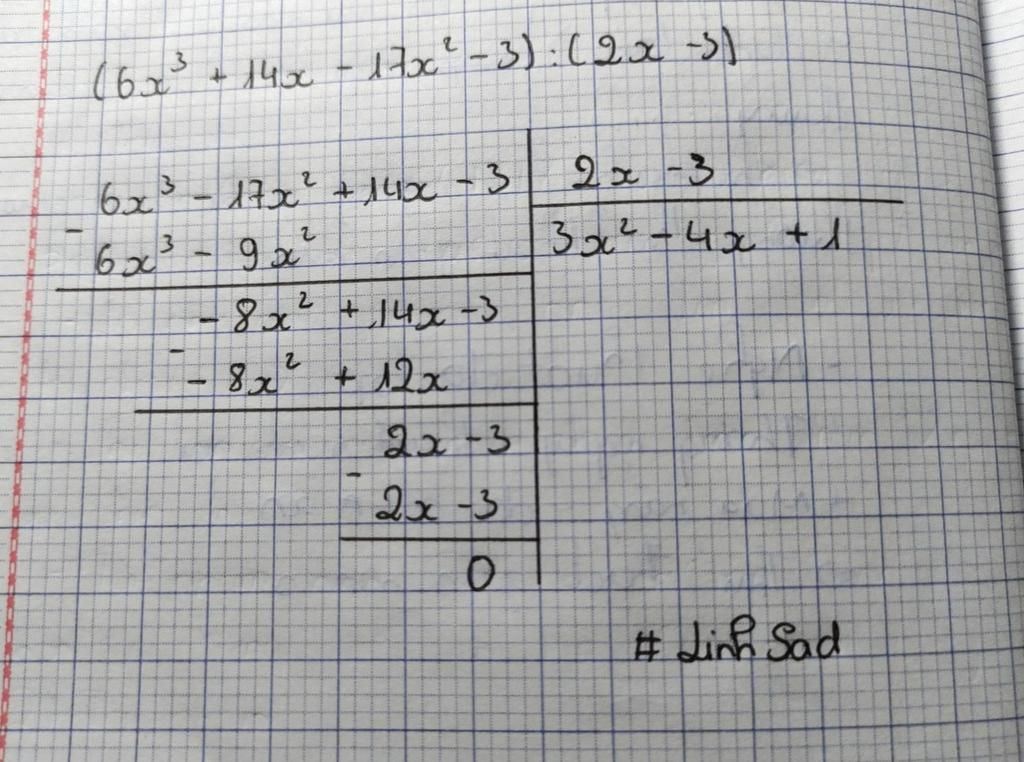 (6x³ + 14x - 17x² - 3) : (2x - 3)
6x³ - 17x² + 14x - 3 | 2x - 3
-
6x³ - 9x² | 3x² - 4x + 1
- 8x² + 14x - 3
-
- 8x² + 12x
2x - 3
-
2x - 3
0
# Linh Sad